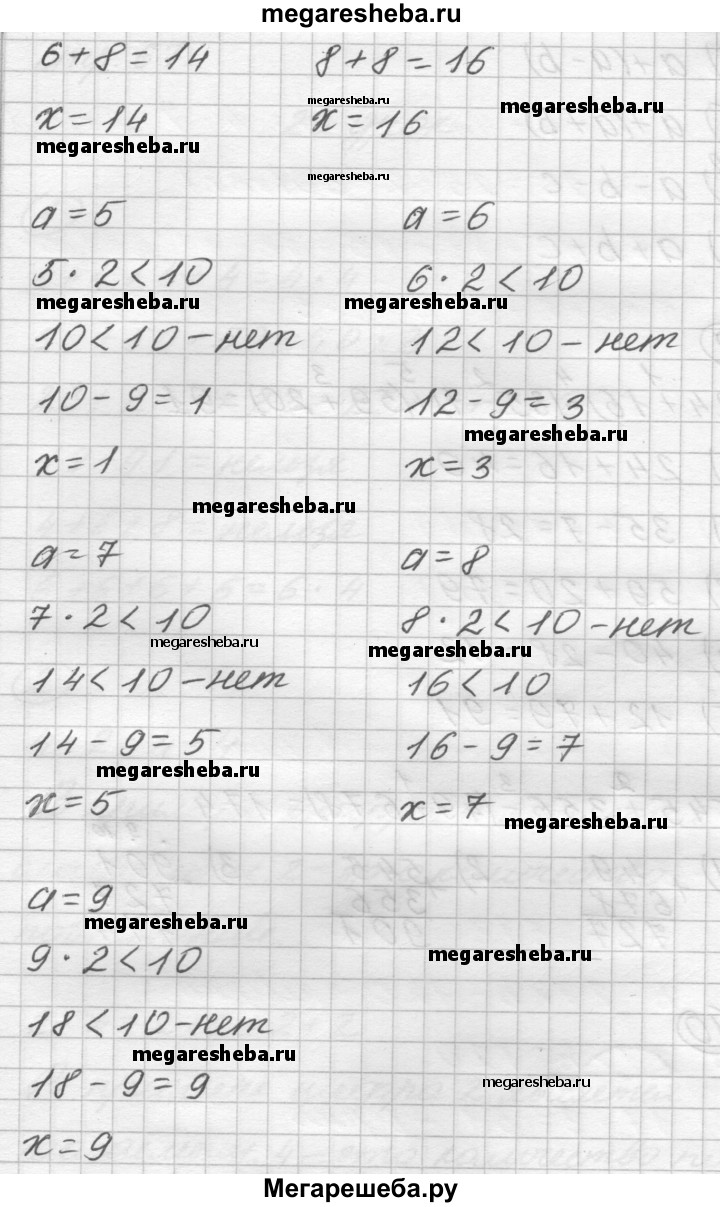 megaresheba.ru
6 + 8 = 14 8 + 8 = 16
megaresheba.ru
megaresheba.ru
x = 14 x = 16
megaresheba.ru
megaresheba.ru
a = 5 a = 6
5 · 2 < 10 6 · 2 < 10
megaresheba.ru megaresheba.ru
10 < 10 - нет 12 < 10 - нет
10 - 9 = 1 12 - 9 = 3
megaresheba.ru
x = 1 x = 3
megaresheba.ru
a = 7 a = 8
7 · 2 < 10 8 · 2 < 10 - нет
megaresheba.ru megaresheba.ru
14 < 10 - нет 16 < 10
14 - 9 = 5 16 - 9 = 7
megaresheba.ru
x = 5 x = 7
megaresheba.ru
a = 9
megaresheba.ru
9 · 2 < 10
megaresheba.ru
18 < 10 - нет
megaresheba.ru
18 - 9 = 9
megaresheba.ru
x = 9
Мегарешеба.ру